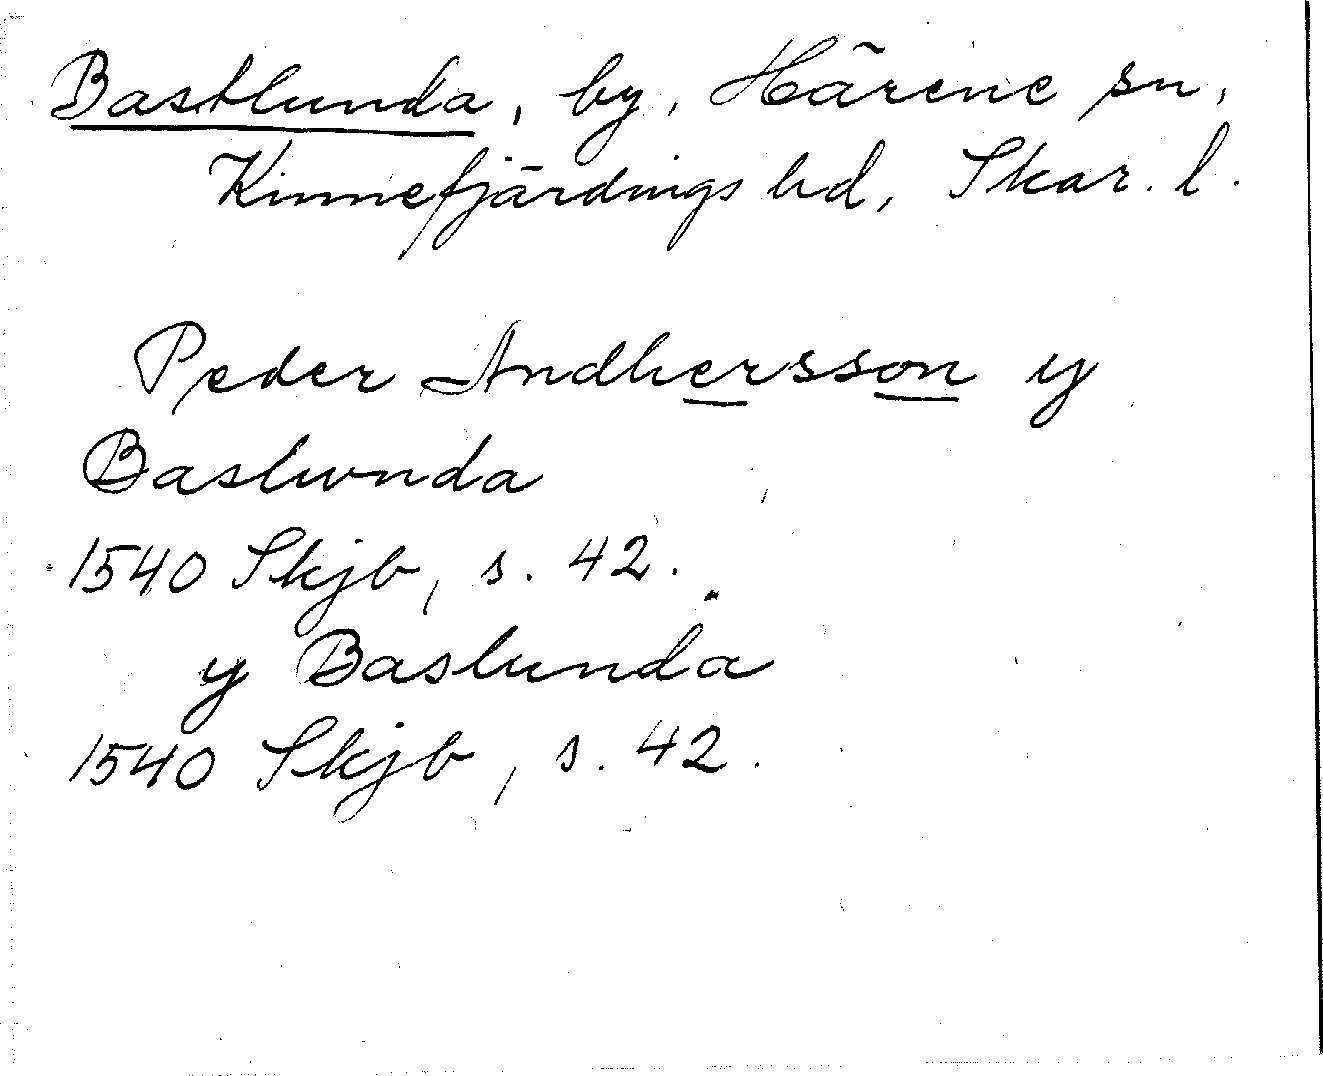 Bastlunda, by, Härene sn,
Kinnefjärdings hd, Skar. l.
Peder Andhersson y
Baslunda
1540 Skjb, s. 42.
y Baslunda
1540 Skjb, s. 42.